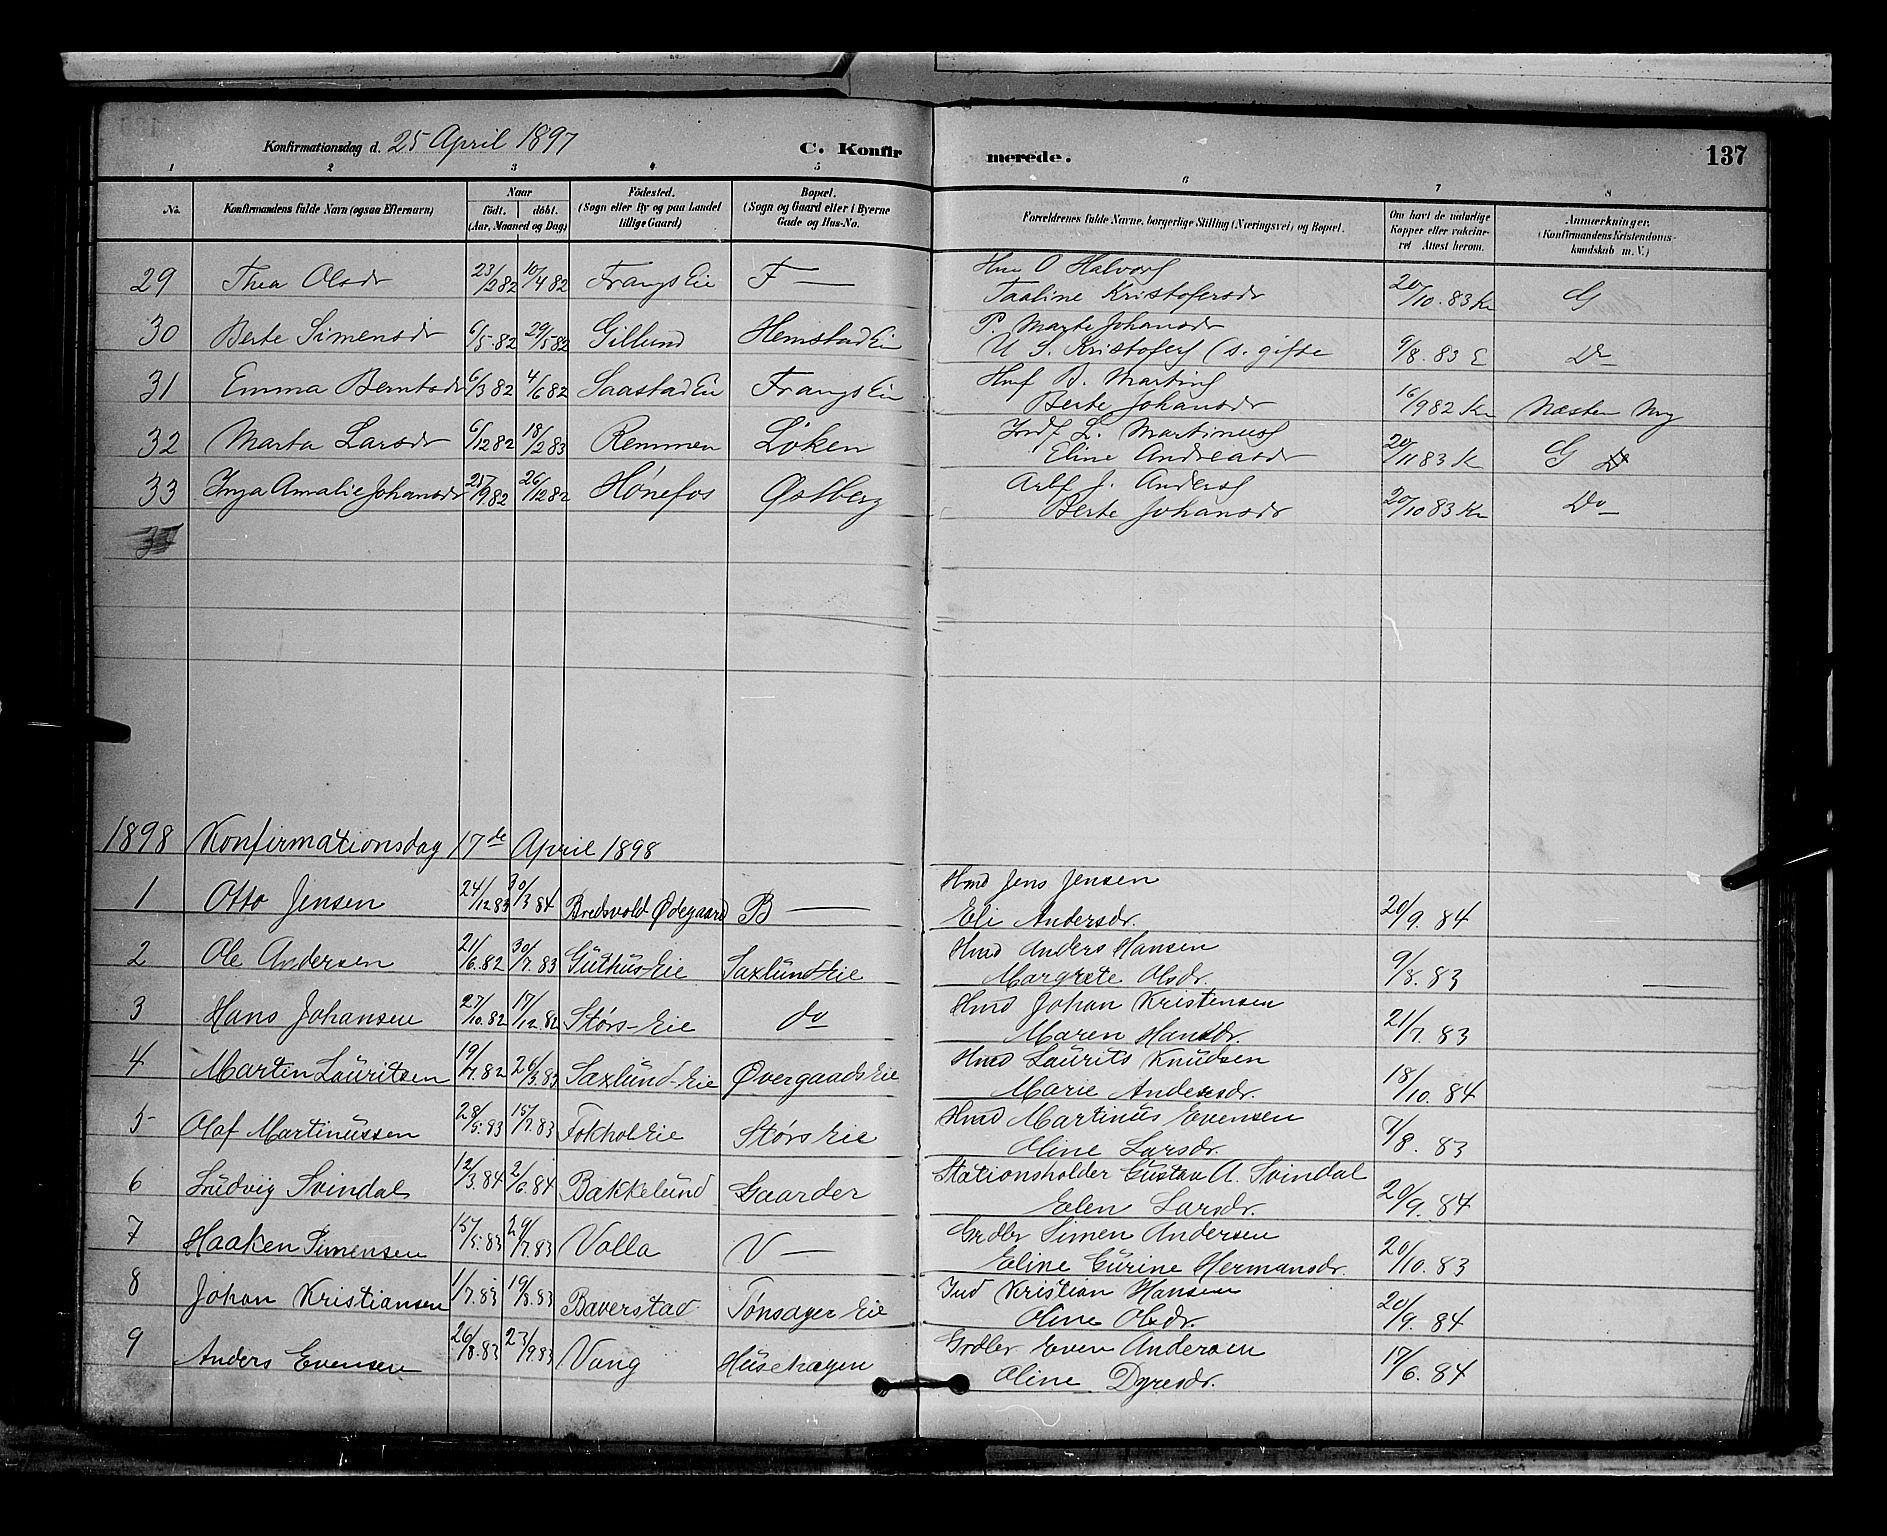 Konfirmationsdag d. 25 April 1897 C. Konfirmerede. 137
1 2 3 4 5 6 7 8
No. Konfirmandens fulde Navn (ogsaa Efternavn) Naar født. døbt. (Aar, Maaned og Dag) Fødested. (Sogn eller By og paa Landet tillige Gaard) Bopæl. (Sogn og Gaard eller i Byerne Gade og Hus-No. Forældrenes fulde Navne, borgerlige Stilling (Næringsvei) og Bopæl. Om havt de naturlige Kopper eller vakcineret Attest herom. Anmærkninger. (Konfirmandens Kristendomskundskab m. V.)
29 Thea Olsdr 23/2 82 10/4 82 Frangs Eie F — Hm O Halvors
Taaline Kristofersdr 20/10. 83 Kr G
30 Berte Simensdr 6/5. 82 29/5 82 Gillund Hemstad Eie P. Marte Johansdr
U S. Kristofers (s. gifte 9/8. 83 E Do
31 Emma Berntsdr 6/3 82 4/6 82 Saastad Eie Frangs Eie Hmf B. Martins
Berte Johansdr 16/9 82 Kr Næsten Mg
32 Marta Larsdr 6/12 82 18/2 83 Remmen Løken Indf L. Martinus
Eline Andreasdr 20/11 83 Kr G
33 Inga Amalie Johansdr 25/9 82 26/12 82 Hønefos Østberg Arbf J. Anders
Berte Johansdr 20/10 83 Kr Do
1898 Konfirmationsdag 17de April 1898
1 Otto Jensen 24/12 83 30/3 84 Bredsvold Ødegaard B — Hmd Jens Jensen
Eli Andersdr. 20/9. 84
2 Ole Andersen 21/6. 82 30/7. 83 Guthus-Eie Saxlund-Eie Hmd Anders Hansen
Margrete Olsdr. 9/8. 83
3 Hans Johansen 27/10. 82 17/12. 82 Størs-Eie do Hmd Johan Kristensen
Maren Hansdr. 21/7. 83
4 Martin Lauritsen 19/7. 82 Saxlund-Eie Øvergaads Eie Hmd Laurits Knudsen
Marie Andersdr. 18/10. 84
5 Olaf Martinussen 28/5. 83 15/7. 83 Fokhol Eie Størs Eie Hmd Martinus Evensen
Oline Larsdr. 7/8. 83
6 Ludvig Svindal 12/3. 84 2/6. 84 Bakkelund Gaarder Stationsholder Gustav A. Svindal
Elen Larsdr. 20/9. 84
7 Haaken Simensen 15/5. 83 29/7. 83 Volla V — Grdbr Simen Andersen
Eline Gurine Hermansdr. 20/10. 83
8 Johan Kristiansen 1/7. 83 19/8. 83 Baverstad Tønsager Eie Ind Kristian Hansen
Oline Olsdr. 20/9. 84
9 Anders Evensen 26/8. 83 23/9. 83 Vang Husehagen Grdbr Even Andersen
Oline Dyresdr. 17/6. 84